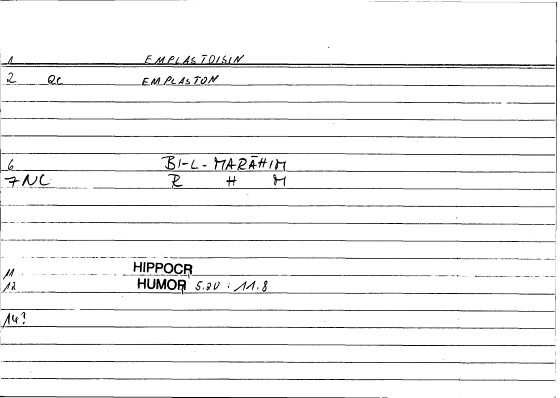 1 EMPLASTOISIN
2 QC EMPLASTON
6 BI-L-MARĀHIM
7 NC R H M
11 HIPPOCR
12 HUMOR 5.20 : 11.8
14?